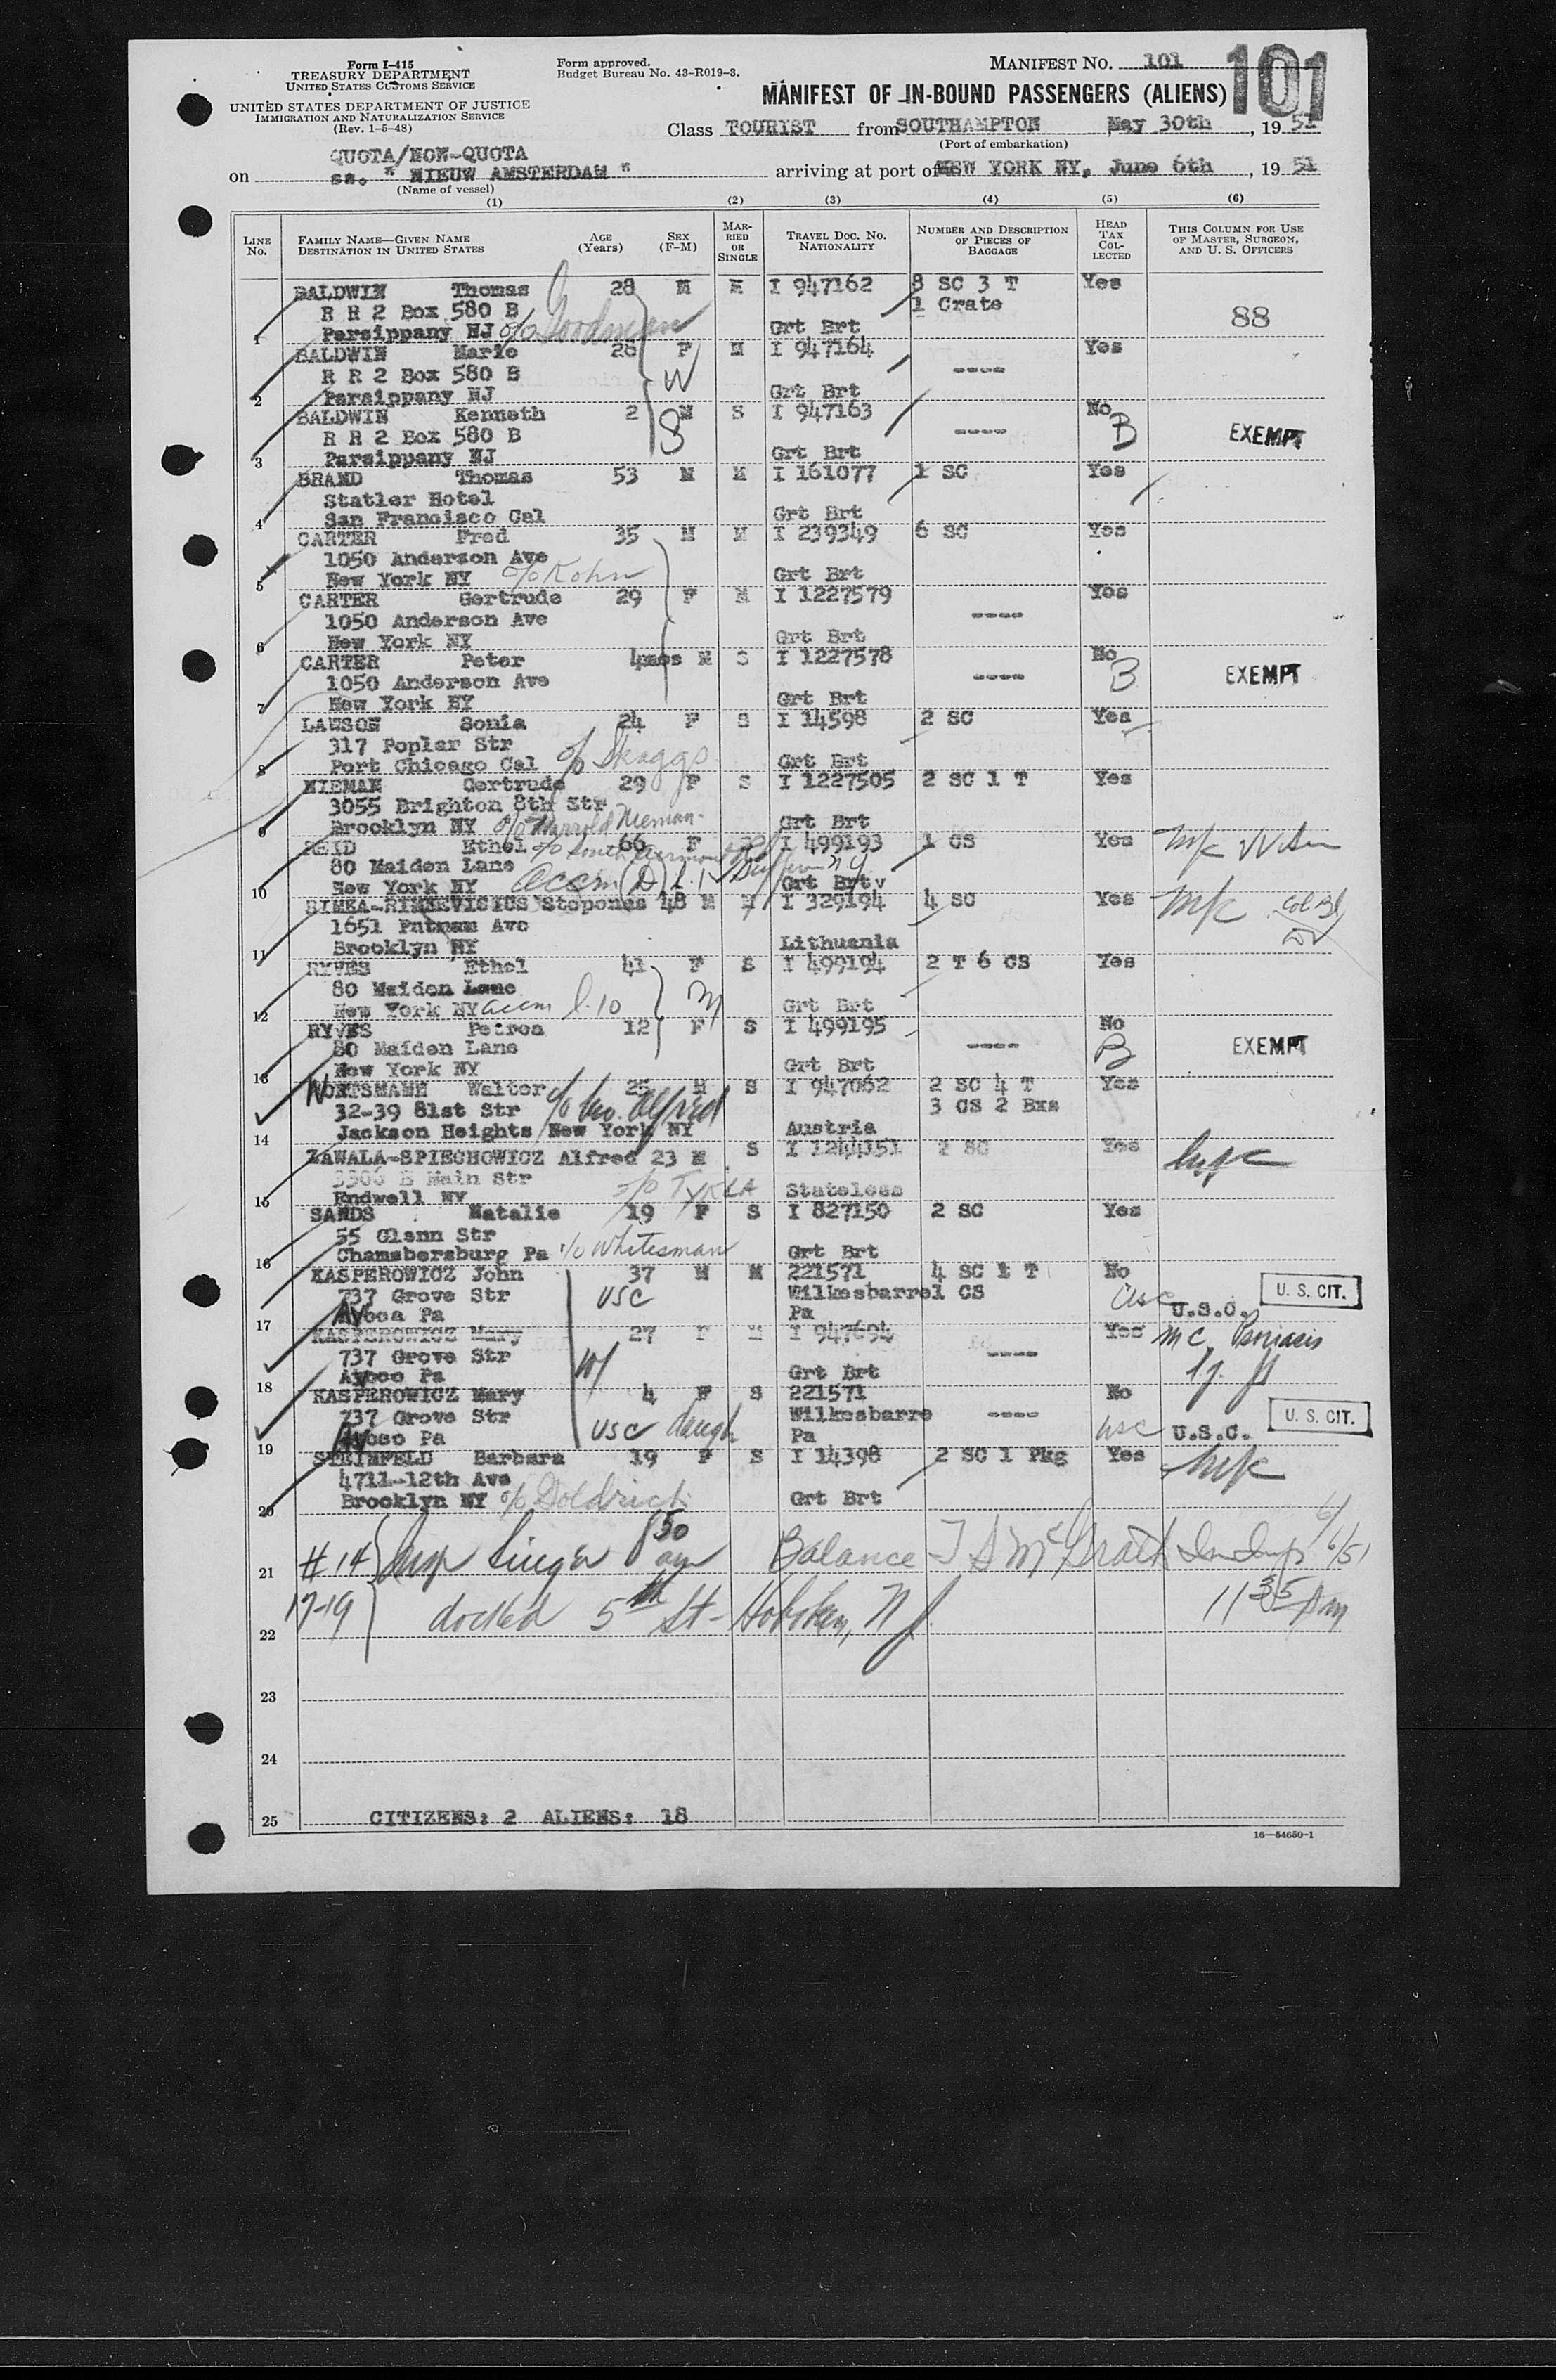 Form I-415
TREASURY DEPARTMENT
UNITED STATES CUSTOMS SERVICE
UNITED STATES DEPARTMENT OF JUSTICE
IMMIGRATION AND NATURALIZATION SERVICE
(Rev. 1-5-48)
Form approved.
Budget Bureau No. 43-R019-3.
MANIFEST No. 101
101
MANIFEST OF IN-BOUND PASSENGERS (ALIENS)
Class TOURIST from SOUTHAMPTON May 30th, 1951
(Port of embarkation)
QUOTA/NON-QUOTA
on ss. " NIEUW AMSTERDAM " arriving at port of NEW YORK NY, June 6th, 19 51
(Name of vessel)
(1) (2) (3) (4) (5) (6)
LINE No. FAMILY NAME—GIVEN NAME DESTINATION IN UNITED STATES AGE (Years) SEX (F-M) MARRIED OR SINGLE TRAVEL DOC. NO. NATIONALITY NUMBER AND DESCRIPTION OF PIECES OF BAGGAGE HEAD TAX COLLECTED THIS COLUMN FOR USE OF MASTER, SURGEON, AND U. S. OFFICERS
BALDWIN Thomas 28 M M I 947162 8 SC 3 T Yes
R R 2 Box 580 B 1 Crate 88
1 Parsippany NJ c/o Goodman Grt Brt
BALDWIN Marie 28 F M I 947164 Yes
R R 2 Box 580 B W ----
2 Parsippany NJ Grt Brt
BALDWIN Kenneth 2 M S I 947163 No
R R 2 Box 580 B S ---- B EXEMPT
3 Parsippany NJ Grt Brt
BRAND Thomas 53 M M I 161077 1 SC Yes
Statler Hotel
4 San Francisco Cal Grt Brt
CARTER Fred 35 M M I 239349 6 SC Yes
1050 Anderson Ave
5 New York NY c/o Kohn Grt Brt
CARTER Gertrude 29 F M I 1227579 Yes
1050 Anderson Ave ----
6 New York NY Grt Brt
CARTER Peter 4mos M S I 1227578 No
1050 Anderson Ave ---- B EXEMPT
7 New York NY Grt Brt
LAWSON Sonia 24 F S I 14598 2 SC Yes
317 Poplar Str
8 Port Chicago Cal c/o Skaggs Grt Brt
NIEMAN Gertrude 29 F S I 1227505 2 SC 1 T Yes
3055 Brighton 8th Str
9 Brooklyn NY c/o Harrold Nieman Grt Brt
REID Ethel 66 F I 499193 1 CS Yes
80 Maiden Lane
10 New York NY accm Grt Brt
RIMSA-RIMSEVICIUS Steponas 48 M M I 329194 4 SC Yes
1651 Putnam Ave
11 Brooklyn NY Lithuania
RYVES Ethel 41 F S I 499194 2 T 6 CS Yes
80 Maiden Lane M
12 New York NY accm l. 10 Grt Brt
RYVES Petrea 12 F S I 499195 No
80 Maiden Lane ---- B EXEMPT
13 New York NY Grt Brt
NORTSMANN Walter 25 M S I 947062 2 SC 4 T Yes
32-39 81st Str c/o Alfred 3 CS 2 Bxs
14 Jackson Heights New York NY Austria
ZAWALA-SPIECHOWICZ Alfred 23 M S I 1244151 2 SC Yes
3506 E Main Str
15 Endwell NY c/o Stateless
SANDS Natalie 19 F S I 827150 2 SC Yes
55 Glenn Str
16 Chambersburg Pa c/o Whitesman Grt Brt
KASPEROWICZ John 37 M M 221571 4 SC 1 T No
737 Grove Str USC Wilkesbarre 1 CS usc U.S.C. U. S. CIT.
17 Avoca Pa Pa
KASPEROWICZ Mary 27 F M I 947694 Yes MC Psoriasis
737 Grove Str W ----
18 Avoca Pa Grt Brt
KASPEROWICZ Mary 4 F S 221571 No
737 Grove Str Wilkesbarre ---- U. S. CIT.
19 Avoca Pa USC daugh Pa usc U.S.C.
STEINFELD Barbara 19 F S I 14398 2 SC 1 Pkg Yes
4711-12th Ave
20 Brooklyn NY c/o Goldrich Grt Brt
21 #14 Insp Singer 8 50 am Balance T S McGrath 6/6/51
22 17-19 docked 5th St- Hoboken, N J. 11 35 Am
23
24
25 CITIZENS: 2 ALIENS: 18
16—54650-1